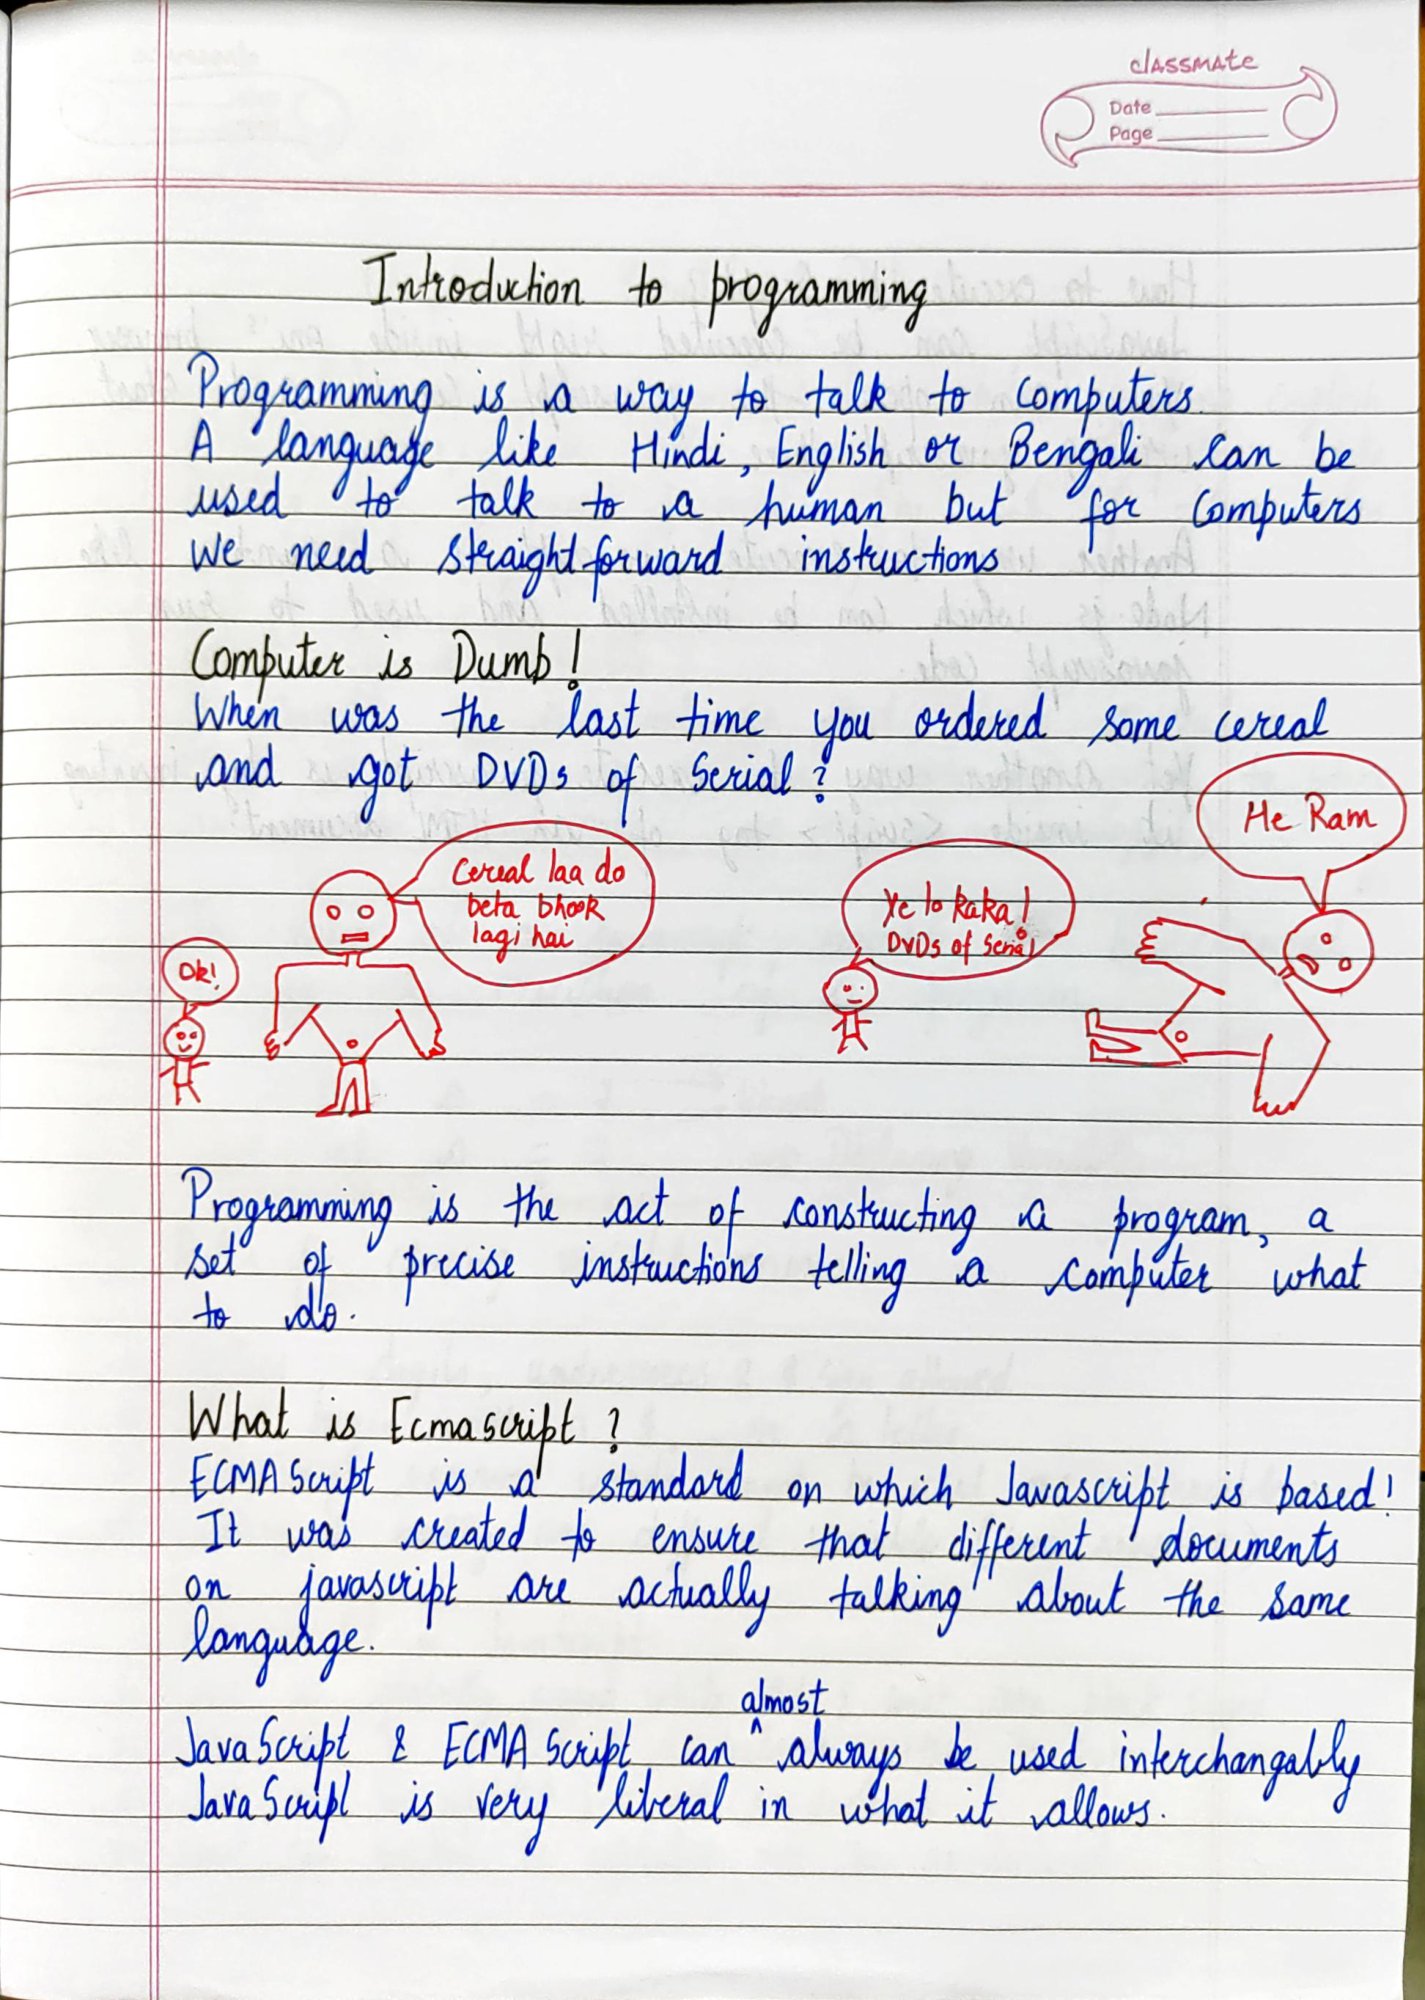 classmate
Date
Page
Introduction to programming
Programming is a way to talk to computers.
A language like Hindi, English or Bengali can be
used to talk to a human but for computers
we need straightforward instructions
Computer is Dumb!
When was the last time you ordered some cereal
and got DVDs of serial?
Cereal laa do
beta bhook
lagi hai
Ok!
Ye lo kaka!
DVDs of serial
He Ram
Programming is the act of constructing a program, a
set of precise instructions telling a computer what
to do.
What is Ecmascript ?
ECMAScript is a standard on which Javascript is based!
It was created to ensure that different documents
on javascript are actually talking about the same
language.
almost
JavaScript & ECMAScript can ^ always be used interchangably
JavaScript is very liberal in what it allows.